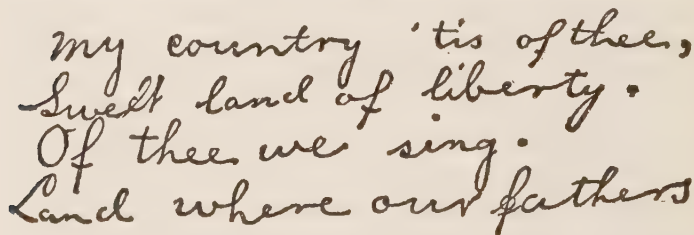 My country 'tis of thee,
Sweet land of liberty.
Of thee we sing.
Land where our fathers